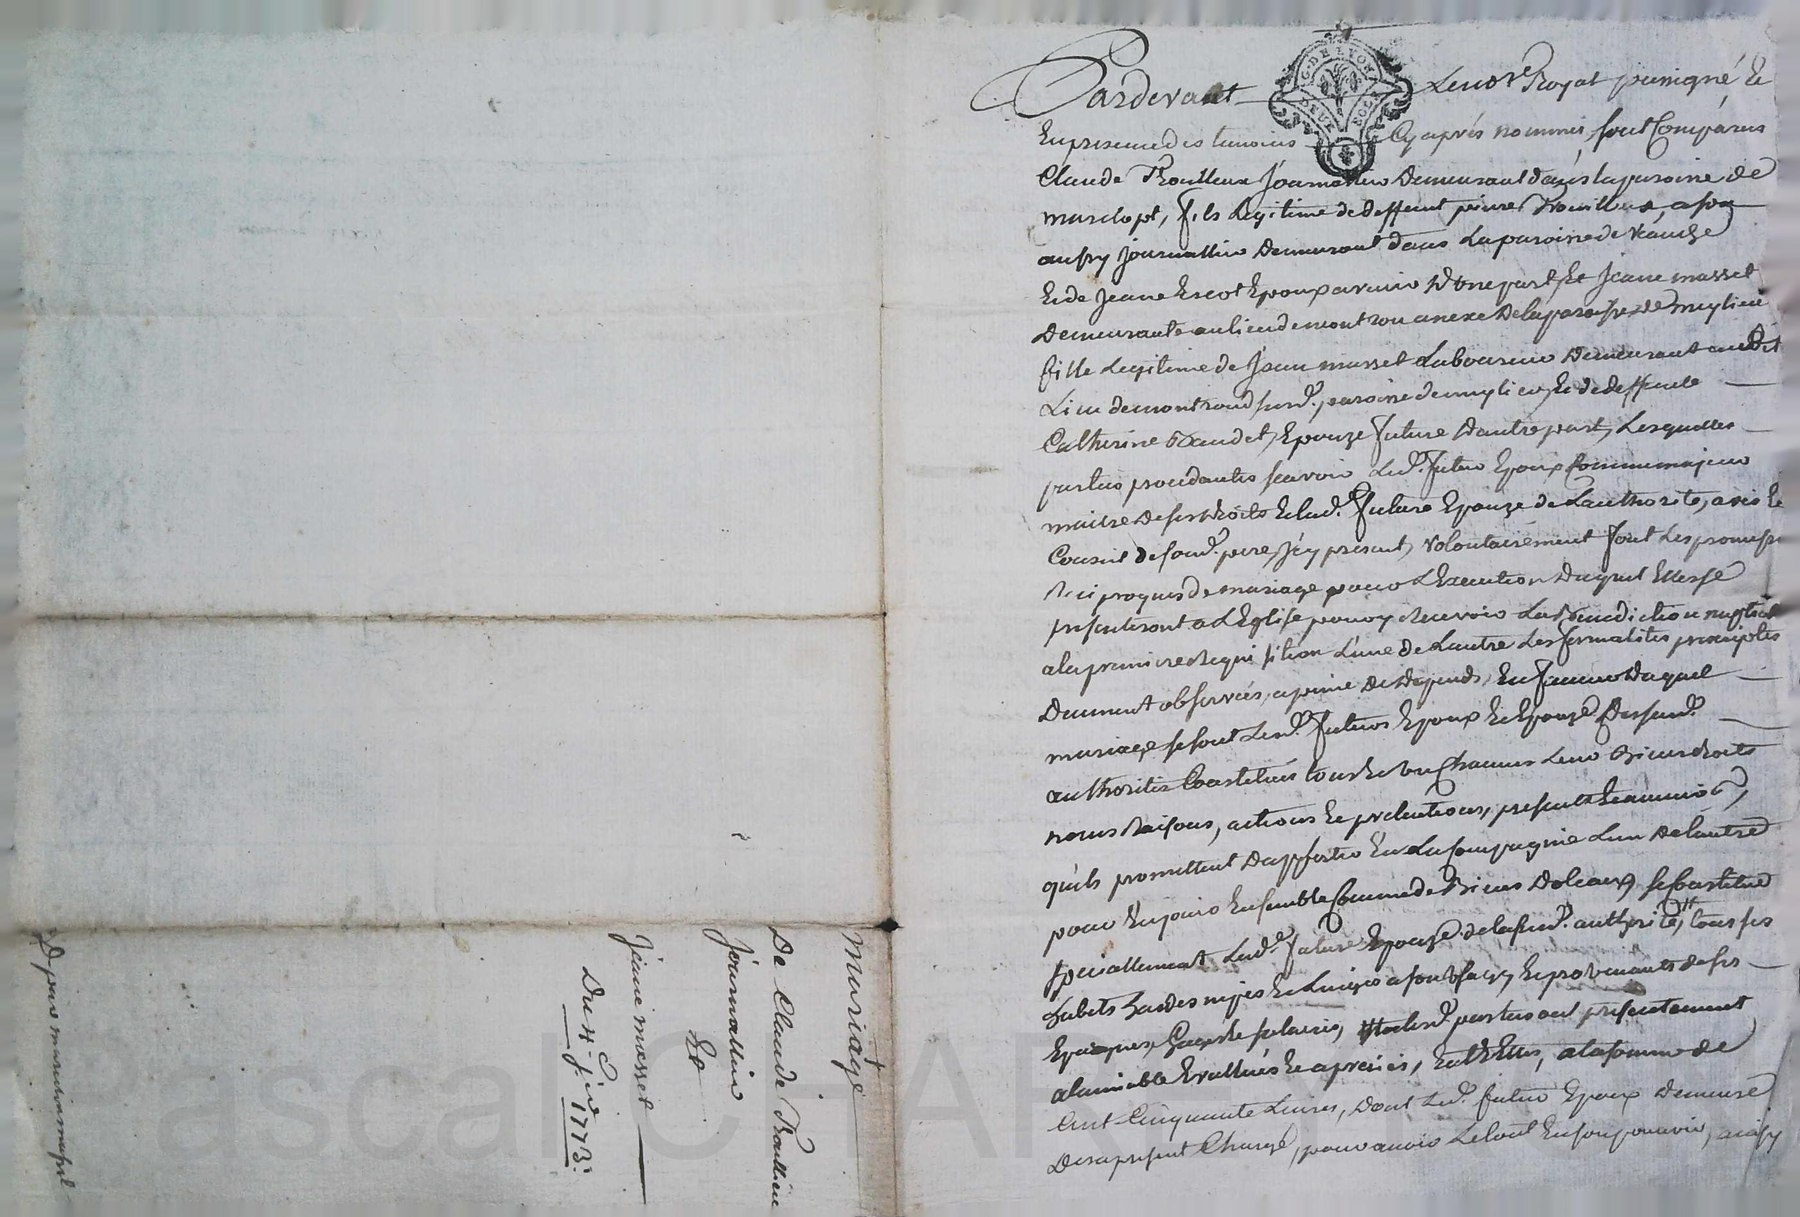 Pardevant Le nore Royal soussigné Et
En presence des temoins Cy après nommés, sont Comparus
G. DE LYON
DEUX SOLS
Claude Roulleux Journallier Demeurant dans la paroisse de
marclopt, fils Legitime de deffunt pierre Rouilleux, a son
aussy journallier Demeurant dans La paroisse de
Et de Jeane Escot Epoux avenir D'une part, Et Jeane masset
Demeurante au lieu de montrond anexe De la paroisse de meylieu
fille Legitime de Jean masset Laboureur Demeurant audit
Lieu de montrond susd. paroisse de meylieu, Et de deffunte
Catherine Baudet, Epouze future D'autre part, Lesquelles
parties procedantes scavoir Led. futur Epoux Comme majeur
maitre de ses droits Et lad. future Epouze de L'authorité, avis Et
Conseil de sond. pere, Icy present, volontairement font Les promesses
Reciproques de mariage pour L'Execution Duquel Elles se
presenteront a L'Eglise pour y Recevoir La Benediction nuptiale
a la premiere Requisition L'une de L'autre Les formalités
Deument observées, a peine de Depends, En faveur Duquel
mariage se sont Lesd. futurs Epoux Et Epouze Dessusd.
authorités Constitués tous Et un Chacuns Leurs Biens droits
noms Raisons, actions Et pretentions, presents Et avenirs,
qu'ils promettent D'apporter En La Compagnie L'un De L'autre
pour Jouir Ensemble Comme de Biens Dotaux, se Constitue
specialement Lad. future Epouze de lasusd. authorité, tous ses
habits hardes nipes Et Linges a son usage, Et provenants de ses
Epargnes, Gages Et salaires, que lesd. parties ont presentement
a l'amiable Evallués Et apreciés, Entr'Elles, a la somme de
Cent Cinquante Livres, Dont Led. futur Epoux demeure
Des a present Chargé, pour avoir Le tout En son pouvoir, ainsy
Mariage
De Claude Roullieu
Journallier
Et
Jeane masset
Du 4 1773
pour masset
Pascal CHARRETIER